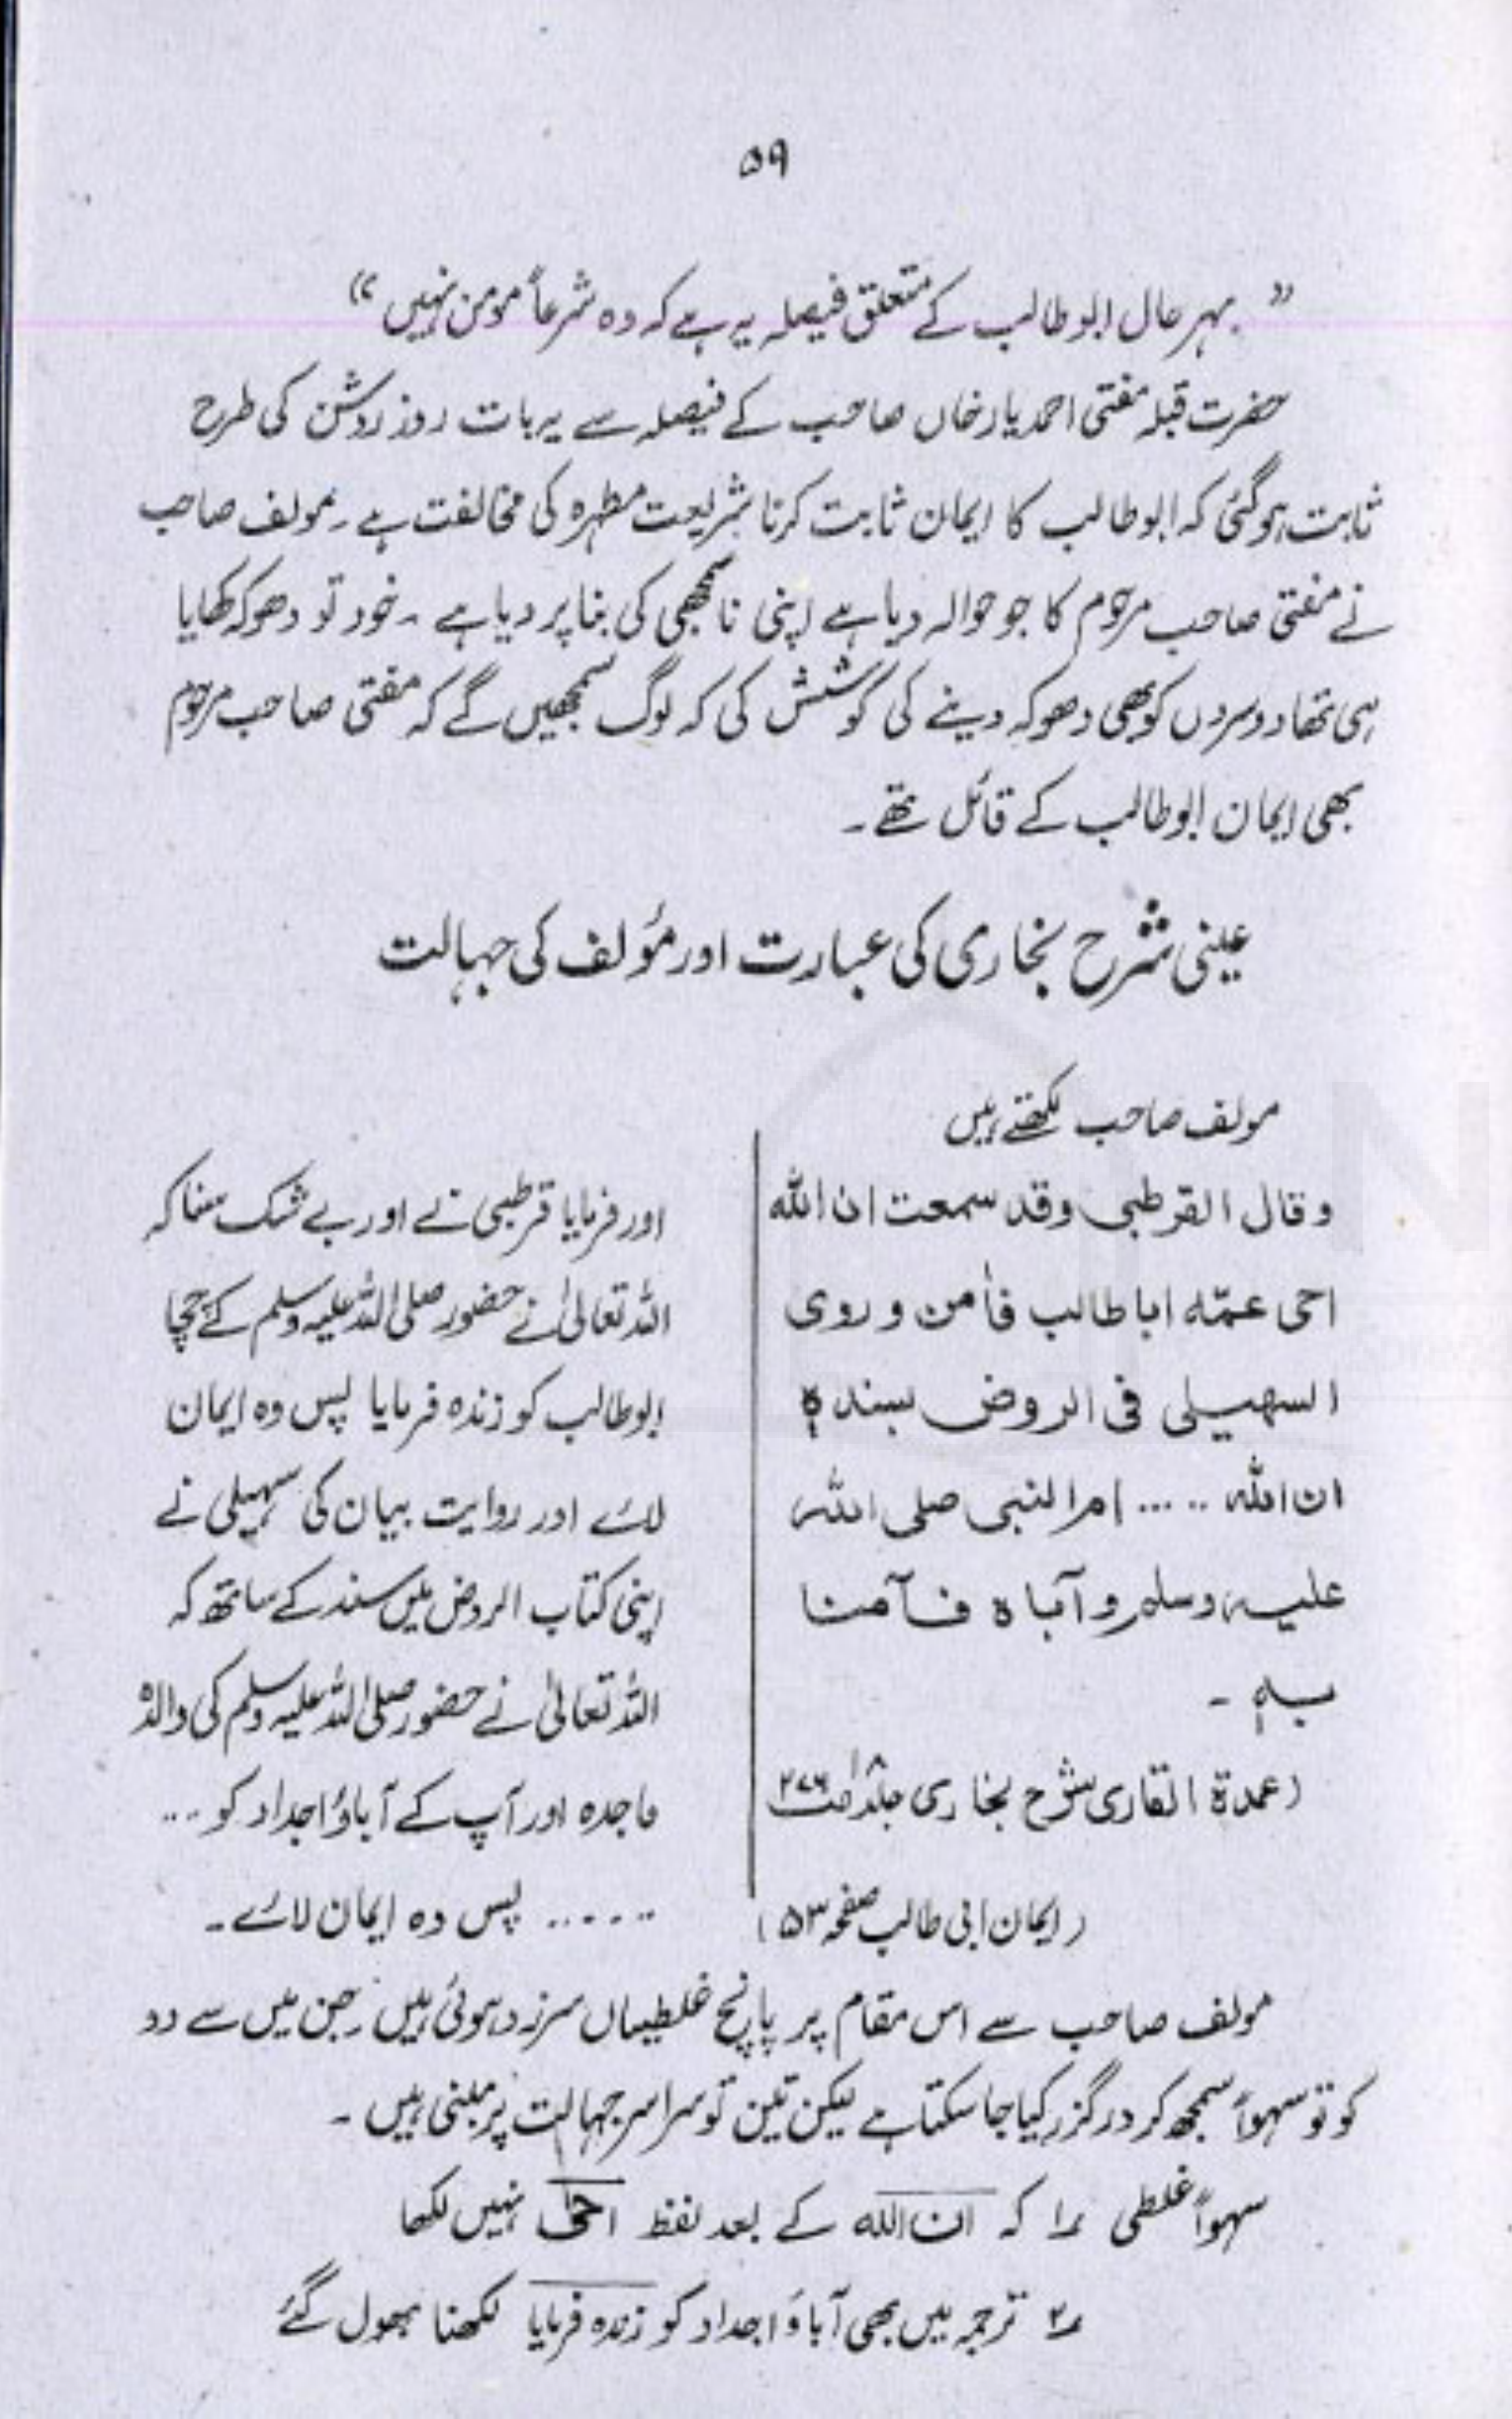 ۵۹
” بہر حال ابو طالب کے متعلق فیصلہ یہ ہے کہ وہ شرعاً مومن نہیں “
حضرت قبلہ مفتی احمد یار خاں صاحب کے فیصلہ سے یہ بات روز روشن کی طرح
ثابت ہو گئی کہ ابو طالب کا ایمان ثابت کرنا شریعت مطہرہ کی مخالفت ہے ۔ مولف صاحب
نے مفتی صاحب مرحوم کا جو حوالہ دیا ہے اپنی ناسمجھی کی بنا پر دیا ہے ۔ خود تو دھوکہ کھایا
ہی تھا دوسروں کو بھی دھوکہ دینے کی کوشش کی کہ لوگ سمجھیں گے کہ مفتی صاحب مرحوم
بھی ایمان ابو طالب کے قائل تھے ۔
عینی شرح بخاری کی عبارت اور مؤلف کی جہالت
مولف صاحب لکھتے ہیں
وقال القرطبی وقد سمعت ان الله
احی عمّہ ابا طالب فاٰمن و روی
السھیلی فی الروض بسندہٖ
ان الله ..... ام النبی صلی الله
علیہ وسلم و آباہ فآمنا
بہٖ ۔
(عمدة القاری شرح بخاری جلد ۸ ص ۲۷۶
(ایمان ابی طالب صفحہ ۵۳)
اور فرمایا قرطبی نے اور بے شک سنا کہ
اللہ تعالیٰ نے حضور صلی اللہ علیہ وسلم کے چچا
ابو طالب کو زندہ فرمایا پس وہ ایمان
لائے اور روایت بیان کی سہیلی نے
اپنی کتاب الروض میں سند کے ساتھ کہ
اللہ تعالیٰ نے حضور صلی اللہ علیہ وسلم کی والدہ
ماجدہ اور آپ کے آباؤ اجداد کو ...
...... پس وہ ایمان لائے ۔
مولف صاحب سے اس مقام پر پانچ غلطیاں سرزد ہوئی ہیں جن میں سے دو
کو تو سہواً سمجھ کر درگزر کیا جا سکتا ہے لیکن تین تو سراسر جہالت پر مبنی ہیں ۔
سہواً غلطی ۱ کہ ان الله کے بعد لفظ احیٰ نہیں لکھا
۲ ترجمہ میں بھی آباؤ اجداد کو زندہ فرمایا لکھنا بھول گئے